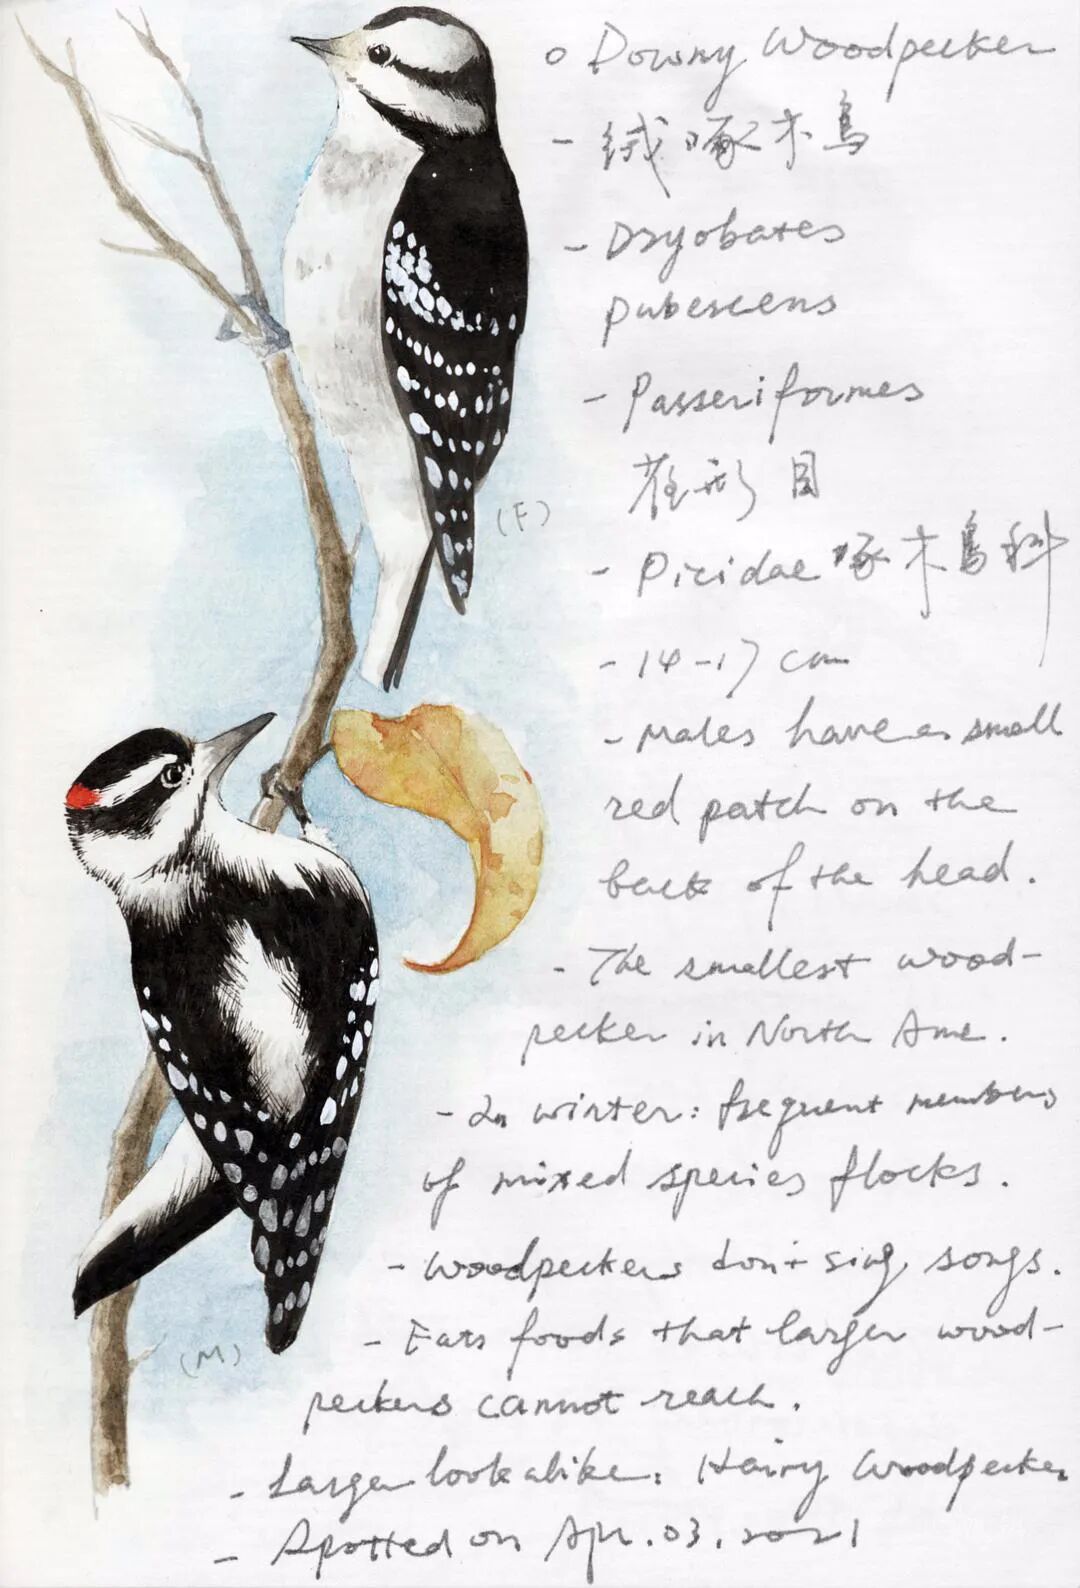 o Downy Woodpecker
- 绒啄木鸟
- Dryobates
pubescens
- Passeriformes
形目
(F)
- Picidae 啄木鸟科
- 14-17 cm
- Males have a small
red patch on the
back of the head.
- The smallest wood-
pecker in North Ame.
- In winter: frequent members
of mixed species flocks.
- Woodpeckers don't sing songs.
- Eats foods that larger wood-
(M)
peckers cannot reach.
- Larger lookalike: Hairy Woodpecker
- Spotted on Apr. 03. 2021